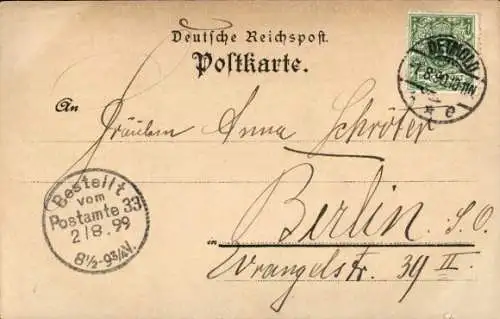 Deutsche Reichspost.
Postkarte.
An
Fräulein Anna Schröter
in Berlin S.O.
Wrangelstr. 39 II
DETMOLD
Bestellt
vom
Postamte 33
2/8.99
8½-9¾V.